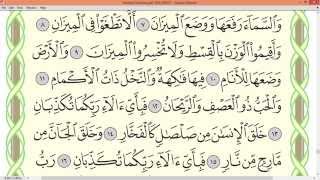 وَٱلسَّمَآءَ رَفَعَهَا وَوَضَعَ ٱلْمِيزَانَ ٧ أَلَّا تَطْغَوْا۟ فِى ٱلْمِيزَانِ ٨
وَأَقِيمُوا۟ ٱلْوَزْنَ بِٱلْقِسْطِ وَلَا تُخْسِرُوا۟ ٱلْمِيزَانَ ٩ وَٱلْأَرْضَ
وَضَعَهَا لِلْأَنَامِ ١٠ فِيهَا فَٰكِهَةٌ وَٱلنَّخْلُ ذَاتُ ٱلْأَكْمَامِ ١١
وَٱلْحَبُّ ذُو ٱلْعَصْفِ وَٱلرَّيْحَانُ ١٢ فَبِأَىِّ ءَالَآءِ رَبِّكُمَا تُكَذِّبَانِ
١٣ خَلَقَ ٱلْإِنسَٰنَ مِن صَلْصَٰلٍ كَٱلْفَخَّارِ ١٤ وَخَلَقَ ٱلْجَآنَّ مِن
مَّارِجٍ مِّن نَّارٍ ١٥ فَبِأَىِّ ءَالَآءِ رَبِّكُمَا تُكَذِّبَانِ ١٦ رَبُّ